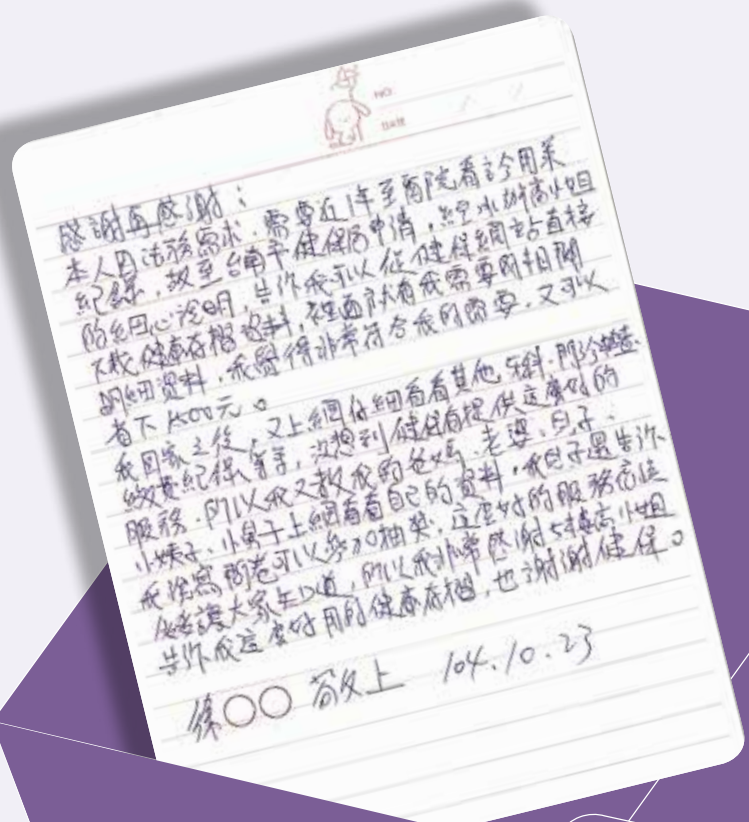 NO.
DATE
感謝再感謝：
本人因法務需求，需要近1年至醫院看診用藥
紀錄，故至台南市健保局申請，經5水號高小姐
的細心說明，告訴我可以從健保網站直接
下載健康存摺資料，裡面就有我需要的相關
明細資料，我覺得非常符合我的需要，又可以
省下 1500元。
我回家之後，又上網仔細看看其他牙科、門診
繳費紀錄等等，沒想到健保有提供這麼好的
服務，所以我又教我的爸媽、老婆、兒子、
小姨子、小舅子上網看看自己的資料，我兒子還告訴
我填寫問卷可以參加抽獎，這麼好的服務應該
讓大家知道，所以我非常感謝5號高小姐
告訴我這麼好用的健康存摺，也謝謝健保。
徐○○ 敬上 104.10.23